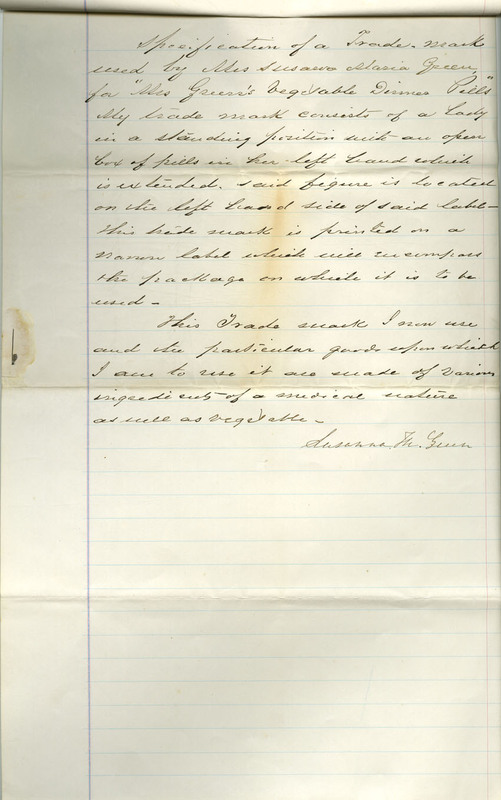 Specification of a Trade-mark
used by Mrs Susana Maria Green,
for "Mrs Green's Vegetable Dinner Pills"
My trade mark consists of a lady
in a standing position with an open
box of pills in her left hand which
is extended. said figure is located
on the left hand side of said label-
This trade mark is printed on a
narrow label which will encompass
the package on which it is to be
used-
This Trade mark I now use
and the particular goods upon which
I am to use it are made of various
ingredients of a medical nature
as well as vegetable-
Susanna. M. Green